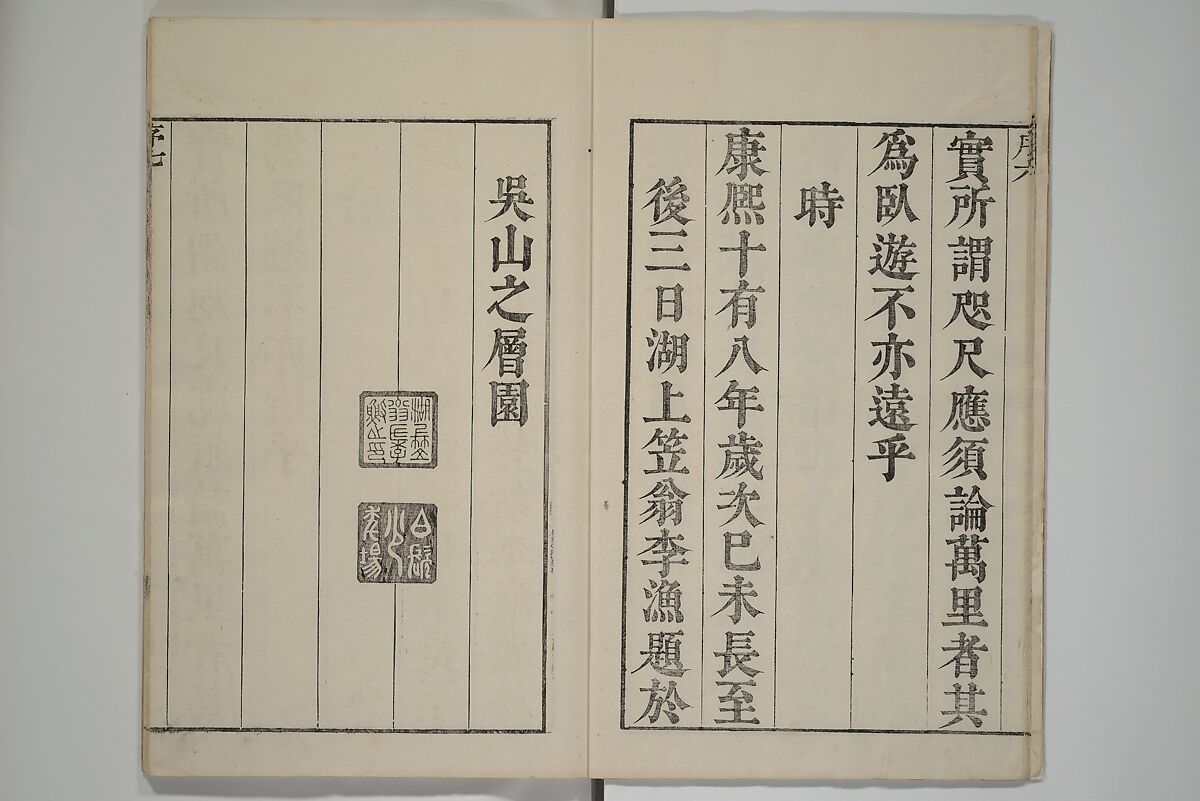 實所謂咫尺應須論萬里者其
爲臥遊不亦遠乎
時
康熙十有八年歲次巳未長至
後三日湖上笠翁李漁題於
吳山之層園
湖上笠翁李漁之印
序七